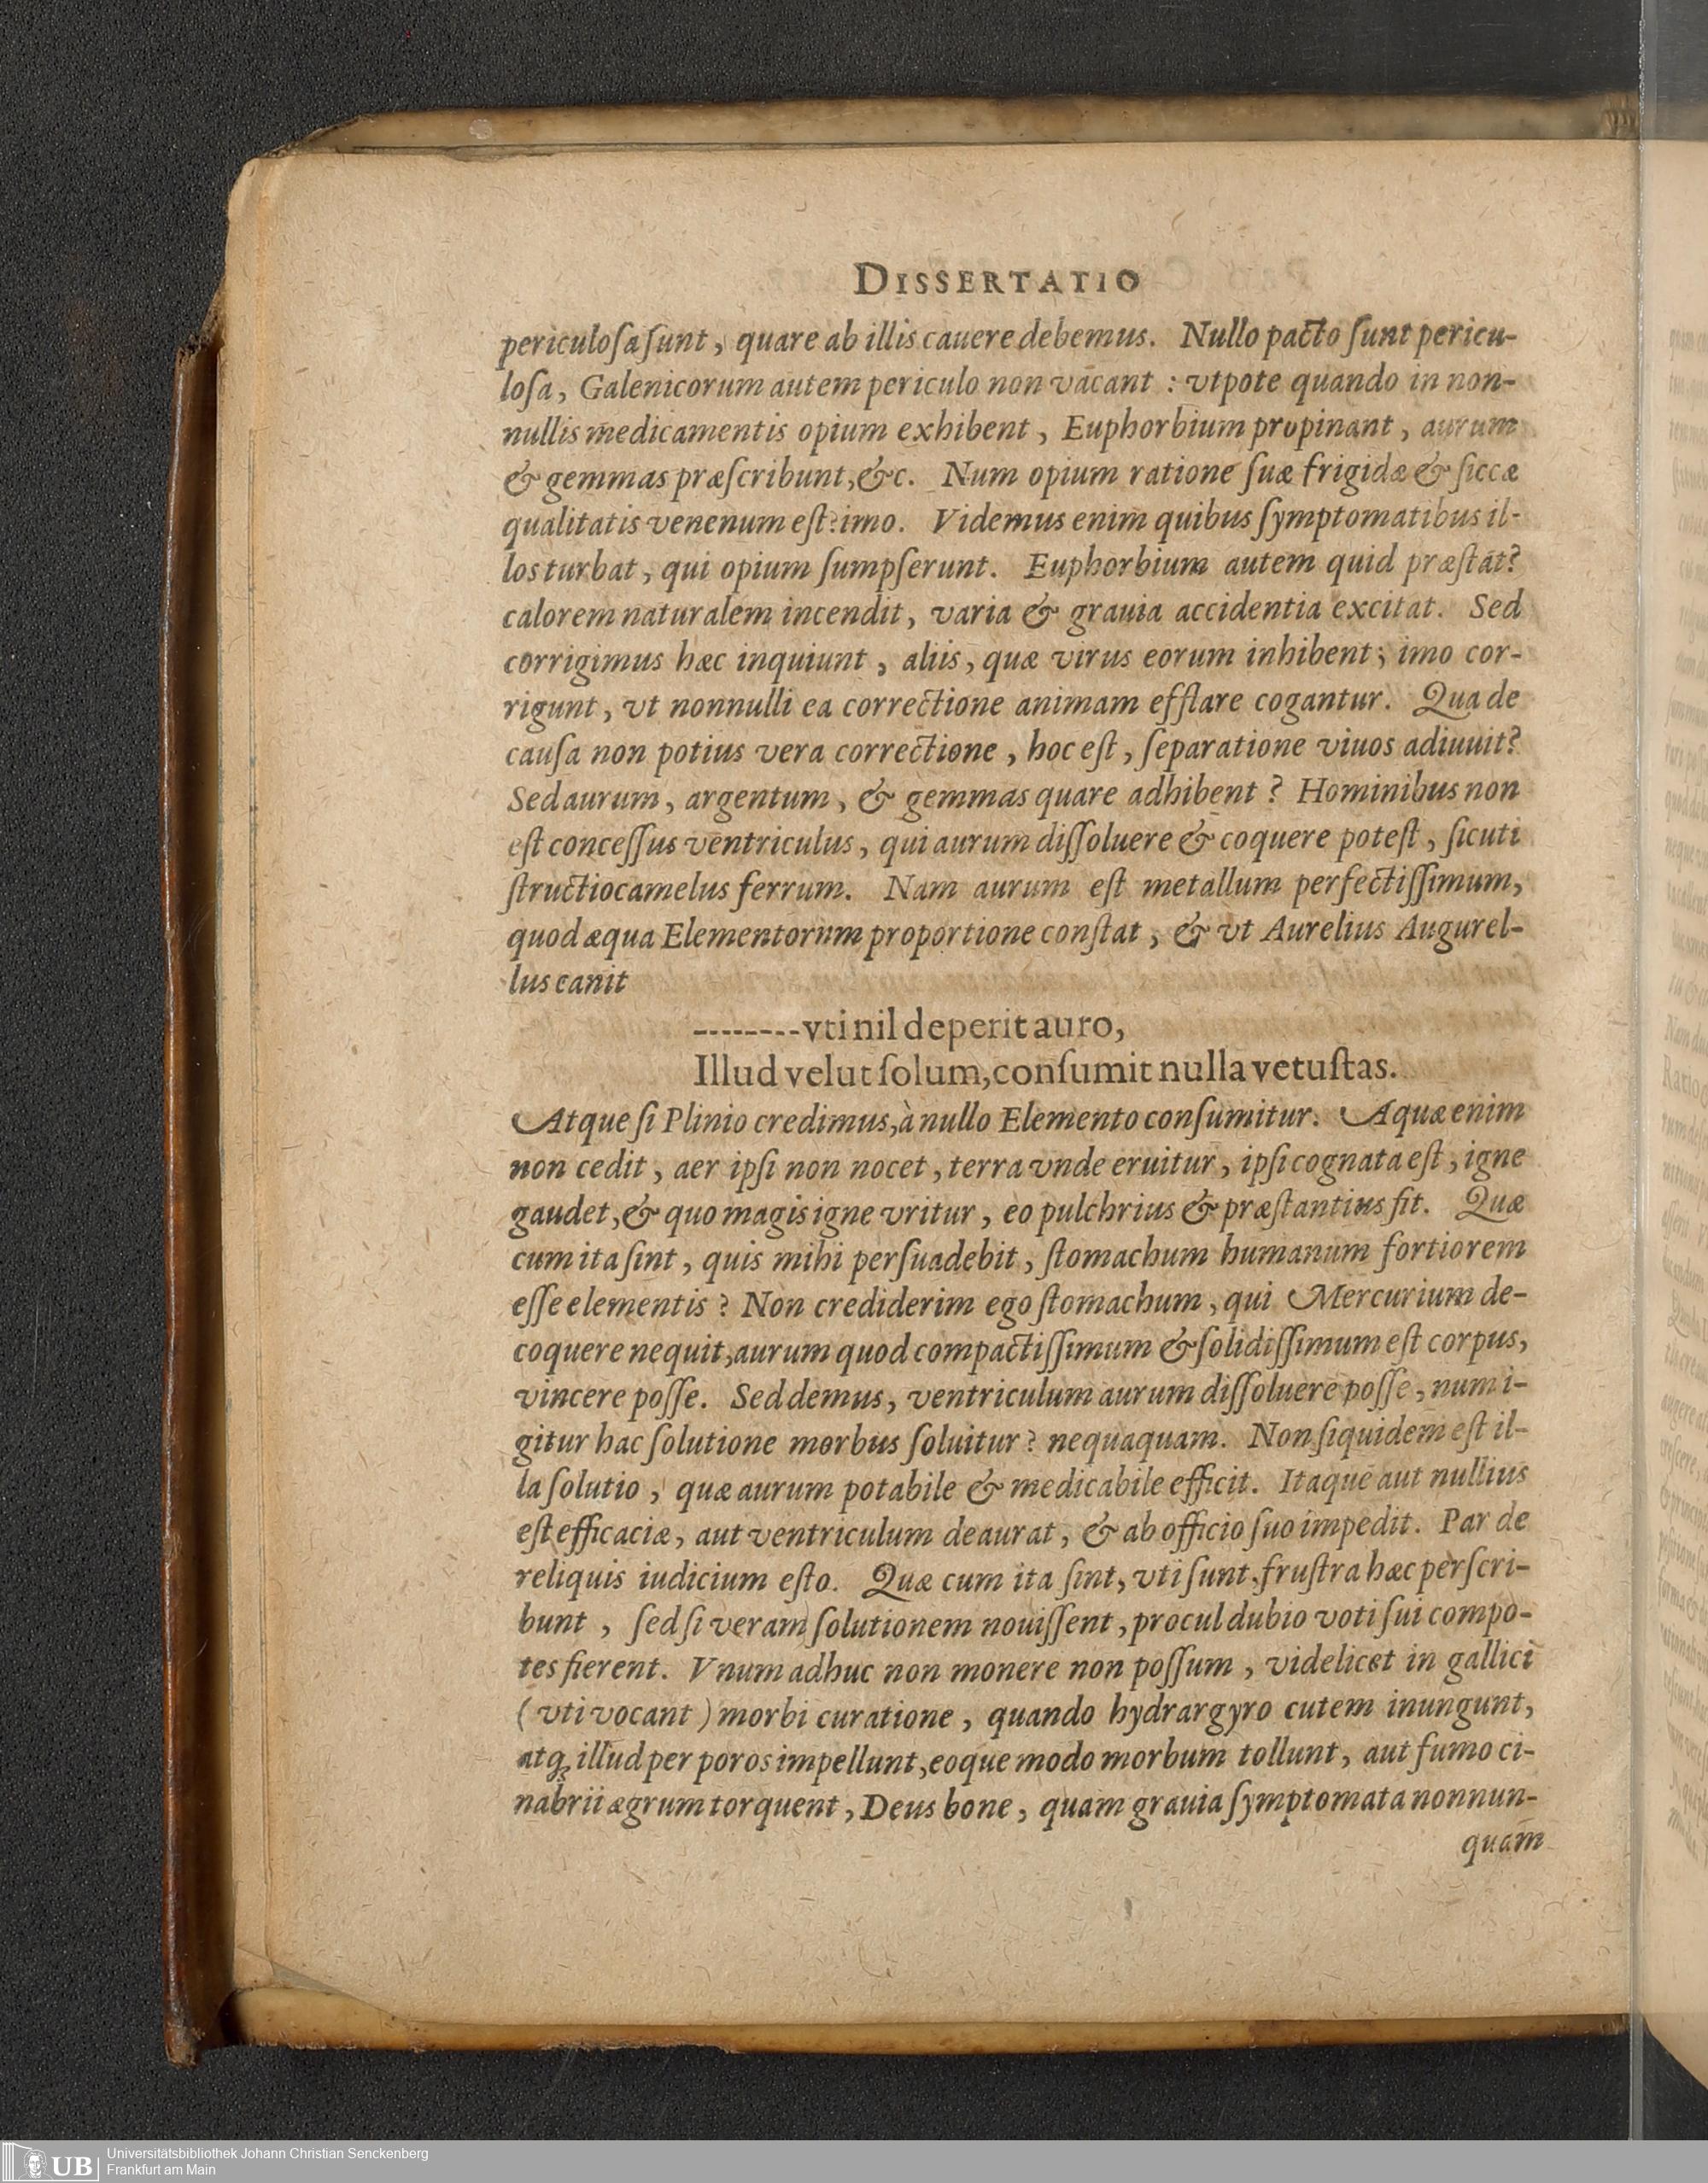 DISSERTATIO
periculoſa ſunt, quare ab illis cauere debemus. Nullo pacto ſunt pericu-
loſa, Galenicorum autem periculo non vacant : vtpote quando in non-
nullis medicamentis opium exhibent, Euphorbium propinant, aurum
& gemmas præſcribunt, &c. Num opium ratione ſuæ frigidæ & ſiccæ
qualitatis venenum eſt? imo. Videmus enim quibus ſymptomatibus il-
los turbat, qui opium ſumpſerunt. Euphorbium autem quid præſtat?
calorem naturalem incendit, varia & grauia accidentia excitat. Sed
corrigimus hæc inquiunt, aliis, quæ virus eorum inhibent; imo cor-
rigunt, vt nonnulli ea correctione animam efflare cogantur. Qua de
cauſa non potius vera correctione, hoc eſt, ſeparatione viuos adiuuit?
Sed aurum, argentum, & gemmas quare adhibent? Hominibus non
eſt conceſſus ventriculus, qui aurum diſſoluere & coquere poteſt, ſicuti
ſtructiocamelus ferrum. Nam aurum eſt metallum perfectiſſimum,
quod æqua Elementorum proportione conſtat, & vt Aurelius Augurel-
lus canit
--------vti nil deperit auro,
Illud velut ſolum, conſumit nulla vetuſtas.
Atque ſi Plinio credimus, à nullo Elemento conſumitur. Aquæ enim
non cedit, aer ipſi non nocet, terra vnde eruitur, ipſi cognata eſt, igne
gaudet, & quo magis igne vritur, eo pulchrius & præſtantius fit. Quæ
cum ita ſint, quis mihi perſuadebit, ſtomachum humanum fortiorem
eſſe elementis? Non crediderim ego ſtomachum, qui Mercurium de-
coquere nequit, aurum quod compactiſſimum & ſolidiſſimum eſt corpus,
vincere poſſe. Sed demus, ventriculum aurum diſſoluere poſſe, num i-
gitur hac ſolutione morbus ſoluitur? nequaquam. Non ſiquidem eſt il-
la ſolutio, quæ aurum potabile & medicabile efficit. Itaque aut nullius
eſt efficaciæ, aut ventriculum deaurat, & ab officio ſuo impedit. Par de
reliquis iudicium eſto. Quæ cum ita ſint, vti ſunt, fruſtra hæc perſcri-
bunt, ſed ſi veram ſolutionem nouiſſent, procul dubio voti ſui compo-
tes fierent. Vnum adhuc non monere non poſſum, videlicet in gallici
(vti vocant) morbi curatione, quando hydrargyro cutem inungunt,
atq; illud per poros impellunt, eoque modo morbum tollunt, aut fumo ci-
nabrii ægrum torquent, Deus bone, quam grauia ſymptomata nonnun-
quam
UB
Universitätsbibliothek Johann Christian Senckenberg
Frankfurt am Main